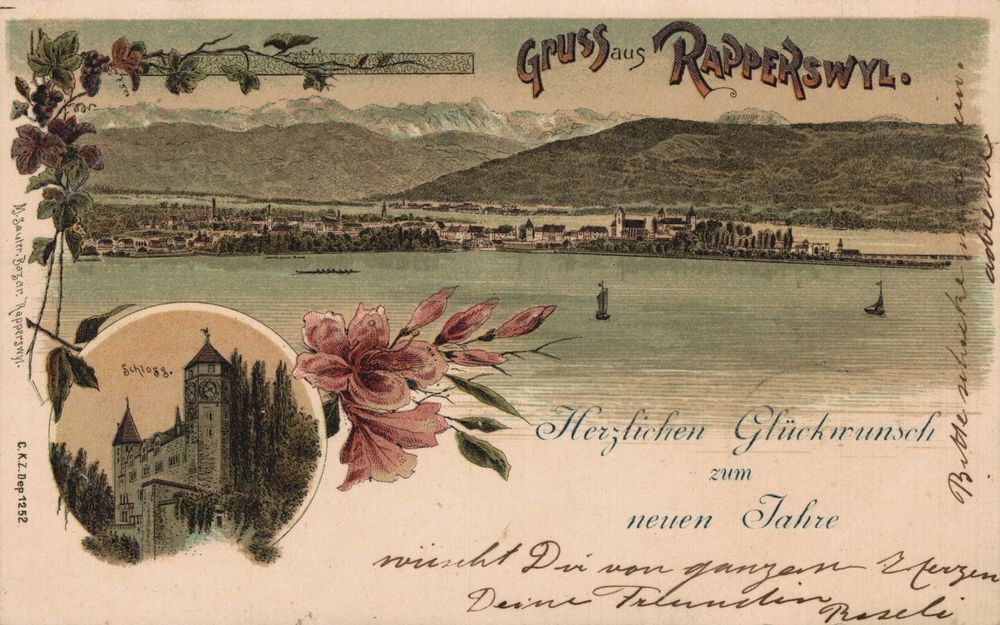 Gruss aus Rapperswyl.
Schloss.
Herzlichen Glückwunsch
zum
neuen Jahre
wüscht Dir von ganzem Herzen
Deine Freundin
Roseli
Bitte
M. Sauter, Bazar, Rapperswyl.
C.K.Z. Dep. 1252